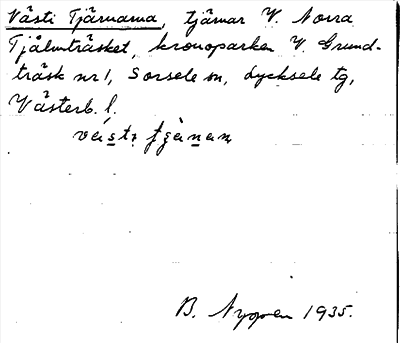 Västi Tjärnarna, tjärnar V. Norra
Tjålmträsket, kronoparken V. Grund-
träsk nr 1, Sorsele sn, Lycksele tg,
Västerb. l.
B. Nygren 1935.